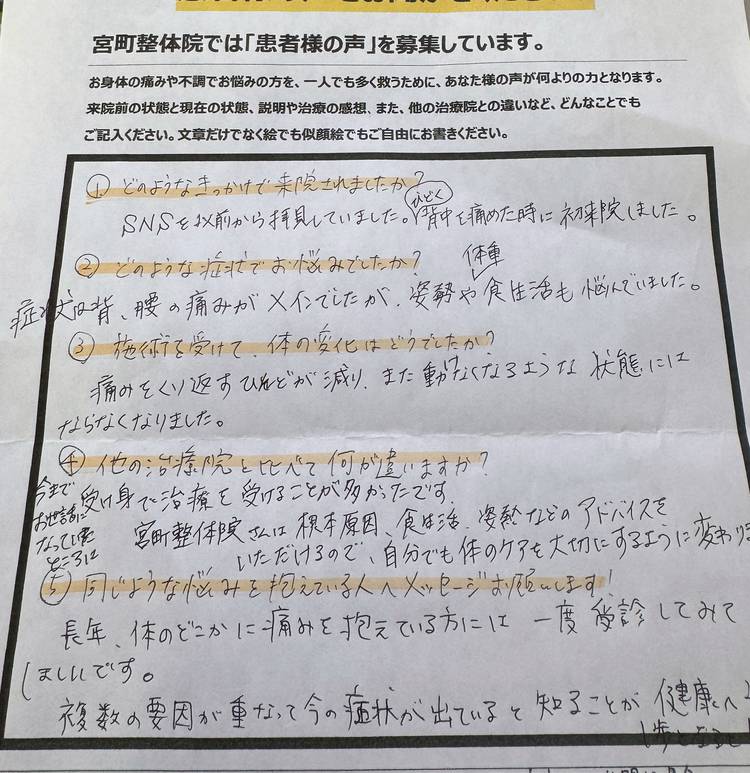 宮町整体院では「患者様の声」を募集しています。
お身体の痛みや不調でお悩みの方を、一人でも多く救うために、あなた様の声が何よりの力となります。
来院前の状態と現在の状態、説明や治療の感想、また、他の治療院との違いなど、どんなことでも
ご記入ください。文章だけでなく絵でも似顔絵でもご自由にお書きください。
① どのようなきっかけで来院されましたか?
ひどく
SNSを以前から拝見していました。背中を痛めた時に初来院しました。
② どのような症状でお悩みでしたか?
体重
症状は背、腰の痛みがメインでしたが、姿勢や食生活も悩んでいました。
③ 施術を受けて、体の変化はどうでしたか?
痛みをくり返すひんどが減り、また動けなくなるような状態には
ならなくなりました。
④ 他の治療院と比べて何が違いますか?
今まで
お世話に
なっていた
ところは
受け身で治療を受けることが多かったです。
宮町整体院さんは根本原因、食生活、姿勢などのアドバイスを
いただけるので、自分でも体のケアを大切にするように変わり
⑤ 同じような悩みを抱えている人へメッセージお願いします!
長年、体のどこかに痛みを抱えている方には一度受診してみて
ほしいです。
複数の要因が重なって今の症状が出ていると知ることが健康へ
歩となると